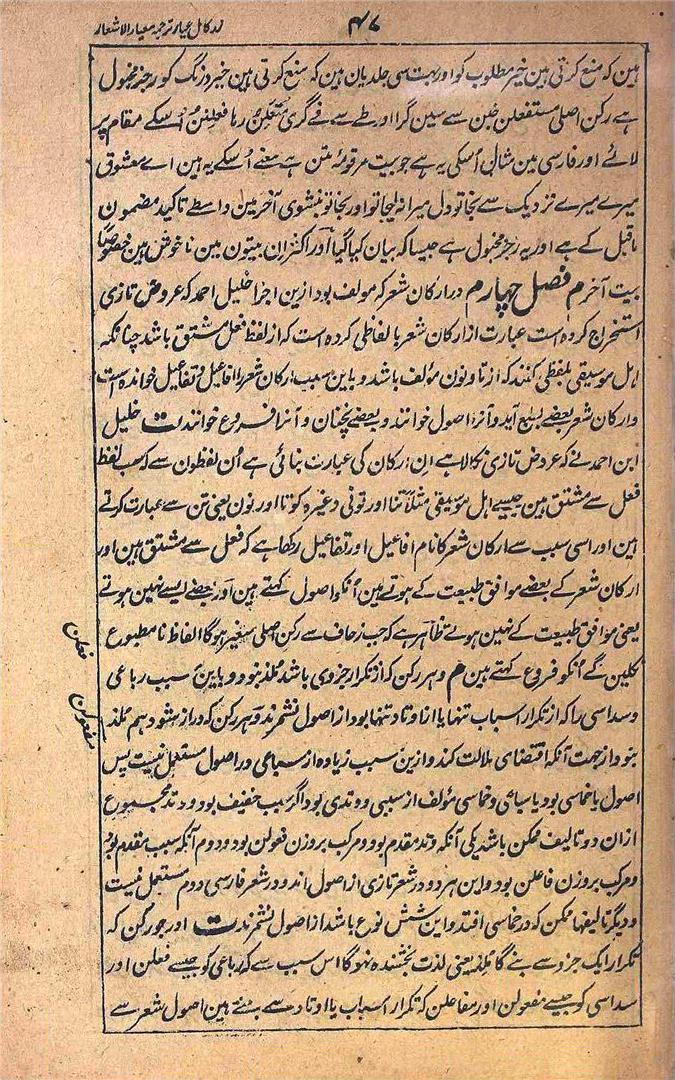 زر کامل عیار ترجمہ معیار الاشعار
۴۷
ہین کہ منع کرتی ہین خیر مطلوب کو اور بہت سی جلدیان ہین کہ منع کرتی ہین خیر درنگ کو رجز مخبول
ہے رکن اصلی مستفعلن خبن سے سین گرا اور طے سے فے گری متعلن رہا فعلتن اُسکے مقام پر
لائے اور فارسی مین مثال اُسکی یہ ہے جو بیت مرقومۂ متن ہے معنے اُسکے یہ ہین اے معشوق
میرے میرے نزدیک سے بجا تو دل میرا نہ لیجا تو اور بجا تو نبشوی آخر مین واسطے تاکید مضمون
ماقبل کے ہے اور یہ رجز مخبول ہے جیسا کہ بیان کیا گیا اور اکثر ان بیتون مین ناخوش ہین خصوصاً
بیت آخر م فصل چہارم در ارکان شعر کہ مولف بود ازین اجزا خلیل احمد کہ عروض تازی
استخراج کردہ است عبارت از ارکان شعر بالفاظی کردہ است کہ از لفظ فعل مشتق باشد چنانکہ
اہل موسیقی بلفظی کنند کہ از تا و نون مؤلف باشد و باین سبب ارکان شعر را افاعیل و تفاعیل خواندہ است
و ارکان شعر بعضے بطبع آید و آنرا اصول خوانند و بعضے نچنان و آنرا فروع خوانند ت خلیل
ابن احمد نے کہ عروض تازی نکالا ہے ان ارکان کی عبارت بنائی ہے اُن لفظون سے کہ سب لفظ
فعل سے مشتق ہین جیسے اہل موسیقی مثلاً تنا اور تونی وغیرہ کو تا اور نون یعنی تن سے عبارت کرتے
ہین اور اسی سبب سے ارکان شعر کا نام افاعیل اور تفاعیل رکھا ہے کہ فعل سے مشتق ہین اور
ارکان شعر کے بعضے موافق طبیعت کے ہوتے ہین اُنکو اصول کہتے ہین اور بعضے ایسے نہین ہوتے
یعنی موافق طبیعت کے نہین ہوتے ظاہر ہے کہ جب زحاف سے رکن اصلی متغیر ہوگا الفاظ نامطبوع
نکلین گے اُنکو فروع کہتے ہین م و ہر رکن کہ از تکرار جزوی باشد ملذ نبود و باین سبب رباعی
و سداسی را کہ از تکرار اسباب تنہا یا از اوتاد تنہا بود از اصول نشمرند و ہر رکن کہ دراز شود ہم ملذ
نبود از جہت آنکہ اقتضای ملالت کند و ازین سبب زیادہ از سباعی در اصول مستعمل نیست پس
اصول یا خماسی بود یا سباعی و خماسی مؤلف از سببی و وتدی بود اگر سبب خفیف بود و وتد مجموع
ازان دو تالیف ممکن باشد یکی آنکہ وتد مقدم بود و مرکب بر وزن فعولن بود و دوم آنکہ سبب مقدم بود
و مرکب بر وزن فاعلن بود و این ہر دو در شعر تازی از اصول اند و در شعر فارسی دوم مستعمل نیست
و دیگر تالیفہا ممکن کہ در خماسی افتد و این شش نوع باشد از اصول نشمرند ت اور جو رکن کہ
تکرار ایک جزو سے بنے گا ملذ یعنی لذت بخشندہ نہوگا اس سبب سے کہ رباعی کو جیسے فعلن اور
سداسی کو جیسے مفعولن اور مفاعلن کہ تکرار اسباب یا اوتاد سے بنتے ہین اصول شعر سے
فعلن
مفعولن